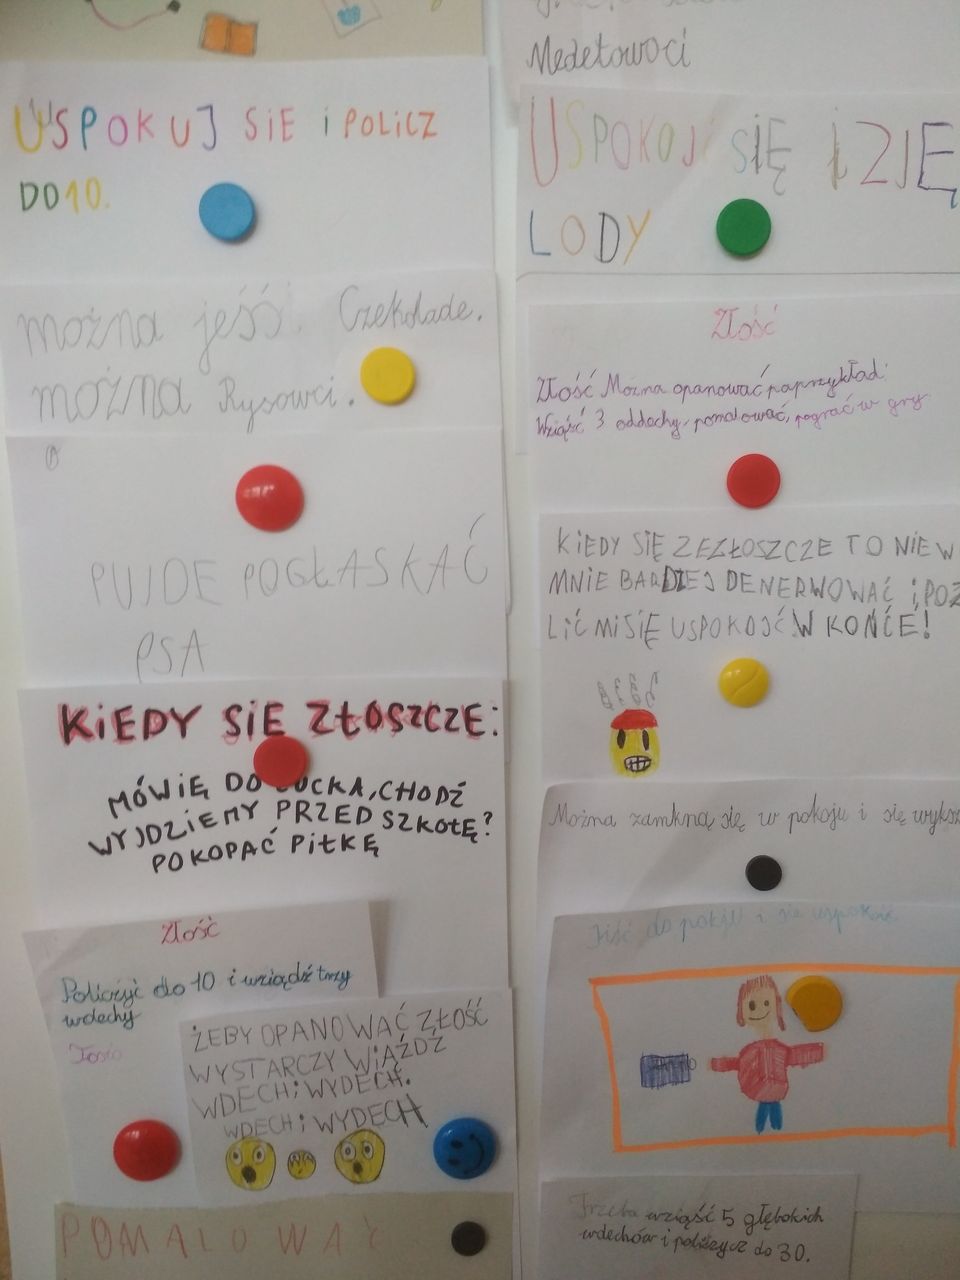 USPOKUJ SIE i POLICZ
DO10.
można jeść Czekolade.
można Rysowci.
PUJDE POGŁASKAĆ
PSA
KiEDY SiE ZŁOSZCZE:
MÓWIĘ DO JUCKA, CHODŹ
WYJDZIEMY PRZED SZKOŁĘ?
POKOPAĆ PiŁKĘ
Złość
Policzyć do 10 i wziądź trzy
wdechy
ŻEBY OPANOWAĆ ZŁOŚĆ
WYSTARCZY WZIĄŹDŹ
WDECH i WYDECH.
WDECH i WYDECH
POMALOWAĆ
Medetowoci
USPOKOJ SIĘ I ZJĘ
LODY
Złość
Złość Można opanować paprzykład:
Wziąść 3 oddechy, pomalować, pograć w gry
KIEDY SIĘ ZEZŁOSZCZE TO NIE W
MNIE BARDZIEJ DENERWOWAĆ i POZ
LIĆ MI SIĘ USPOKOJĆ W KOŃCE!
Można zamkną się w pokoju i się wyksz
Jiść do pokoju i sie uspokoic
Trzeba wziąść 5 głębokich
wdechów i poliżycz do 30.